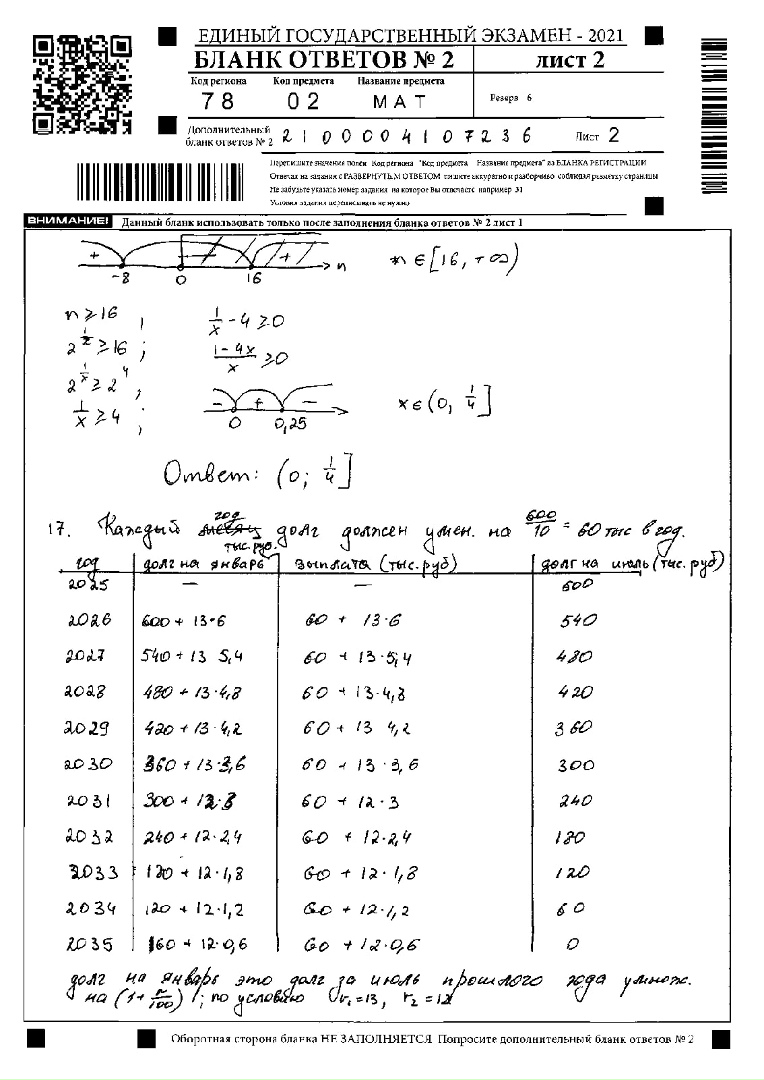 ЕДИНЫЙ ГОСУДАРСТВЕННЫЙ ЭКЗАМЕН - 2021
БЛАНК ОТВЕТОВ № 2
лист 2
Код региона Код предмета Название предмета
78 02 МАТ
Резерв 6
Дополнительный бланк ответов № 2 2100004107236 Лист 2
Перепишите значения полей Код региона "Код предмета Название предмета" из БЛАНКА РЕГИСТРАЦИИ
Отвечая на задания с РАЗВЕРНУТЫМ ОТВЕТОМ пишите аккуратно и разборчиво соблюдая разметку страницы
Не забудьте указать номер задания на которое Вы отвечаете например 31
Условия задания переписывать не нужно
ВНИМАНИЕ! Данный бланк использовать только после заполнения бланка ответов № 2 лист 1
+ - + n
-8 0 16
n ∈ [16, +∞)
n ≥ 16 ; 1/x - 4 ≥ 0
2^(1/x) ≥ 16 ; (1-4x)/x ≥ 0
2^(1/x) ≥ 2^4 ;
1/x ≥ 4 ; - + -
0 0,25
x ∈ (0, 1/4]
Ответ: (0; 1/4]
17. Каждый год долг должен умен. на 600/10 = 60 тыс в год.
год долг на январь тыс. руб. выплата (тыс. руб) долг на июль (тыс. руб)
2025 — — 600
2026 600 + 13·6 60 + 13·6 540
2027 540 + 13 5,4 60 + 13·5,4 480
2028 480 + 13·4,8 60 + 13·4,8 420
2029 420 + 13·4,2 60 + 13 4,2 360
2030 360 + 13·3,6 60 + 13·3,6 300
2031 300 + 12·3 60 + 12·3 240
2032 240 + 12·2,4 60 + 12·2,4 180
2033 180 + 12·1,8 60 + 12·1,8 120
2034 120 + 12·1,2 60 + 12·1,2 60
2035 60 + 12·0,6 60 + 12·0,6 0
долг на январь это долг за июль прошлого года умнож.
на (1+r/100) ; по условию r₁=13, r₂=12
Оборотная сторона бланка НЕ ЗАПОЛНЯЕТСЯ Попросите дополнительный бланк ответов № 2